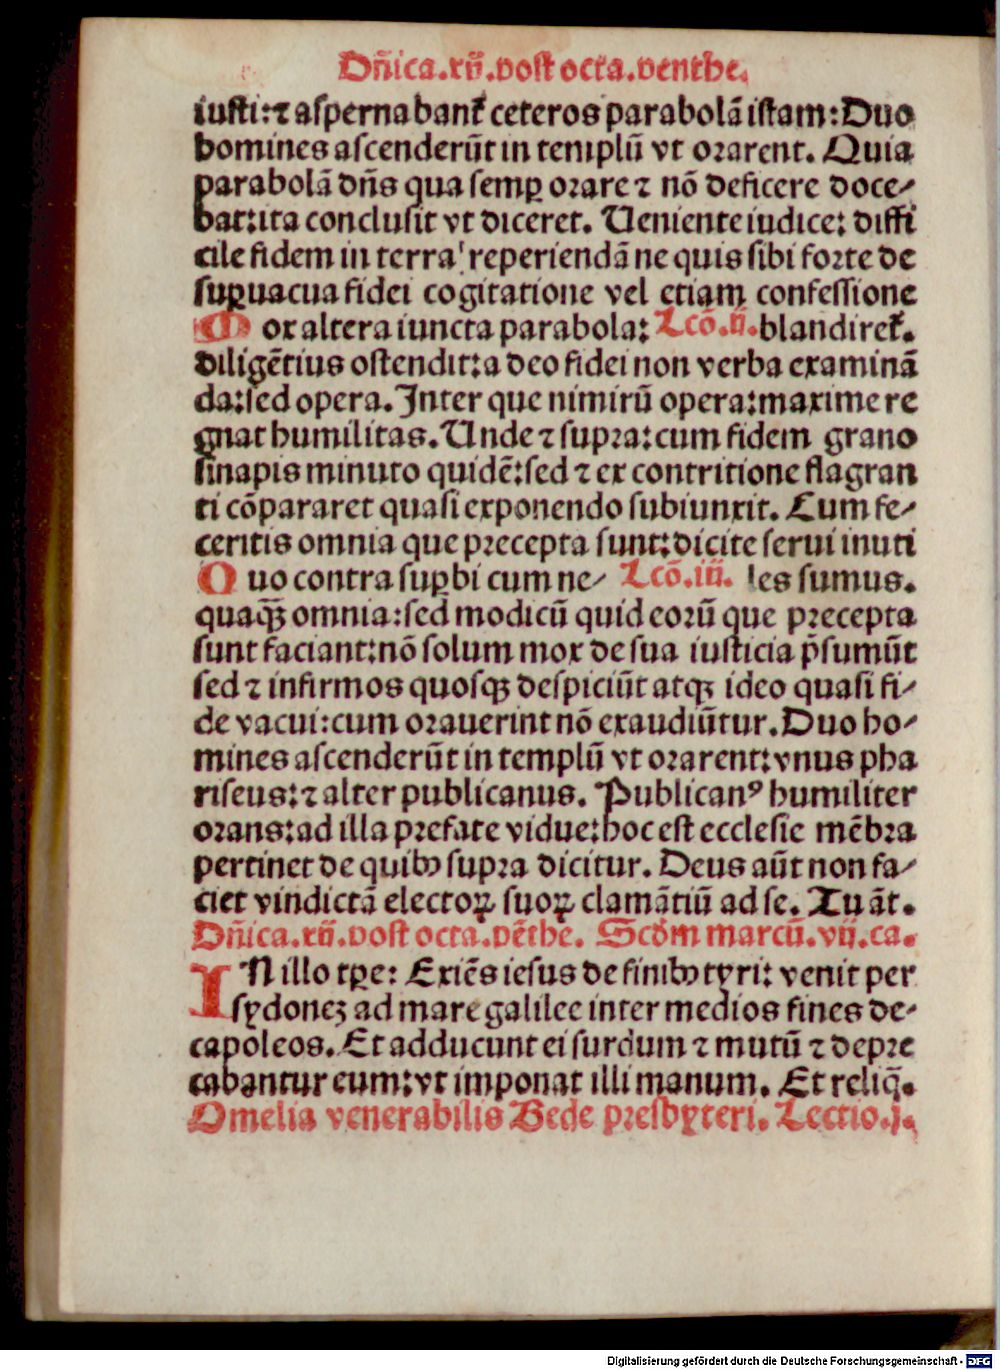 Dñica.xij.post octa.penthe.
iusti:⁊ aspernabant᷑ ceteros parabolā istam:Duo
homines ascenderūt in templū vt orarent. Quia
parabolā dñs qua semꝑ orare ⁊ nō deficere doce-
bat:ita conclusit vt diceret. Ueniente iudice: diffi
cile fidem in terra reperiendā ne quis sibi forte de
suꝑuacua fidei cogitatione vel etiam confessione
Mox altera iuncta parabola: Lcō.ij. blandiret᷑.
diligētius ostendit:a deo fidei non verba examinā
da:sed opera. Inter que nimirū opera:maxime re
gnat humilitas. Unde ⁊ supra:cum fidem grano
sinapis minuto quidē:sed ⁊ ex contritione flagran
ti cōpararet quasi exponendo subiunxit. Cum fe-
ceritis omnia que precepta sunt:dicite serui inuti
Quo contra suꝑbi cum ne- Lcō.iij. les sumus.
quaq̄ꝫ omnia:sed modicū quid eorū que precepta
sunt faciant:nō solum mox de sua iusticia p̄sumūt
sed ⁊ infirmos quosqꝫ despiciūt atqꝫ ideo quasi fi-
de vacui:cum orauerint nō exaudiūtur. Duo ho-
mines ascenderūt in templū vt orarent:vnus pha
riseus:⁊ alter publicanus. Publicanꝰ humiliter
orans:ad illa prefate vidue:hoc est ecclesie mēbra
pertinet de quibꝫ supra dicitur. Deus aūt non fa-
ciet vindictā electoꝝ suoꝝ clamātiū ad se. Tu āt.
Dñica.xij.post octa.pēthe. Scďm marcū.vij.ca.
IN illo tꝑe: Exiēs iesus de finibꝫ tyri: venit per
sydoneꝫ ad mare galilee inter medios fines de-
capoleos. Et adducunt ei surdum ⁊ mutū ⁊ depre
cabantur eum:vt imponat illi manum. Et reliq̄.
Omelia venerabilis Bede presbyteri. Lectio.j.
Digitalisierung gefördert durch die Deutsche Forschungsgemeinschaft - DFG